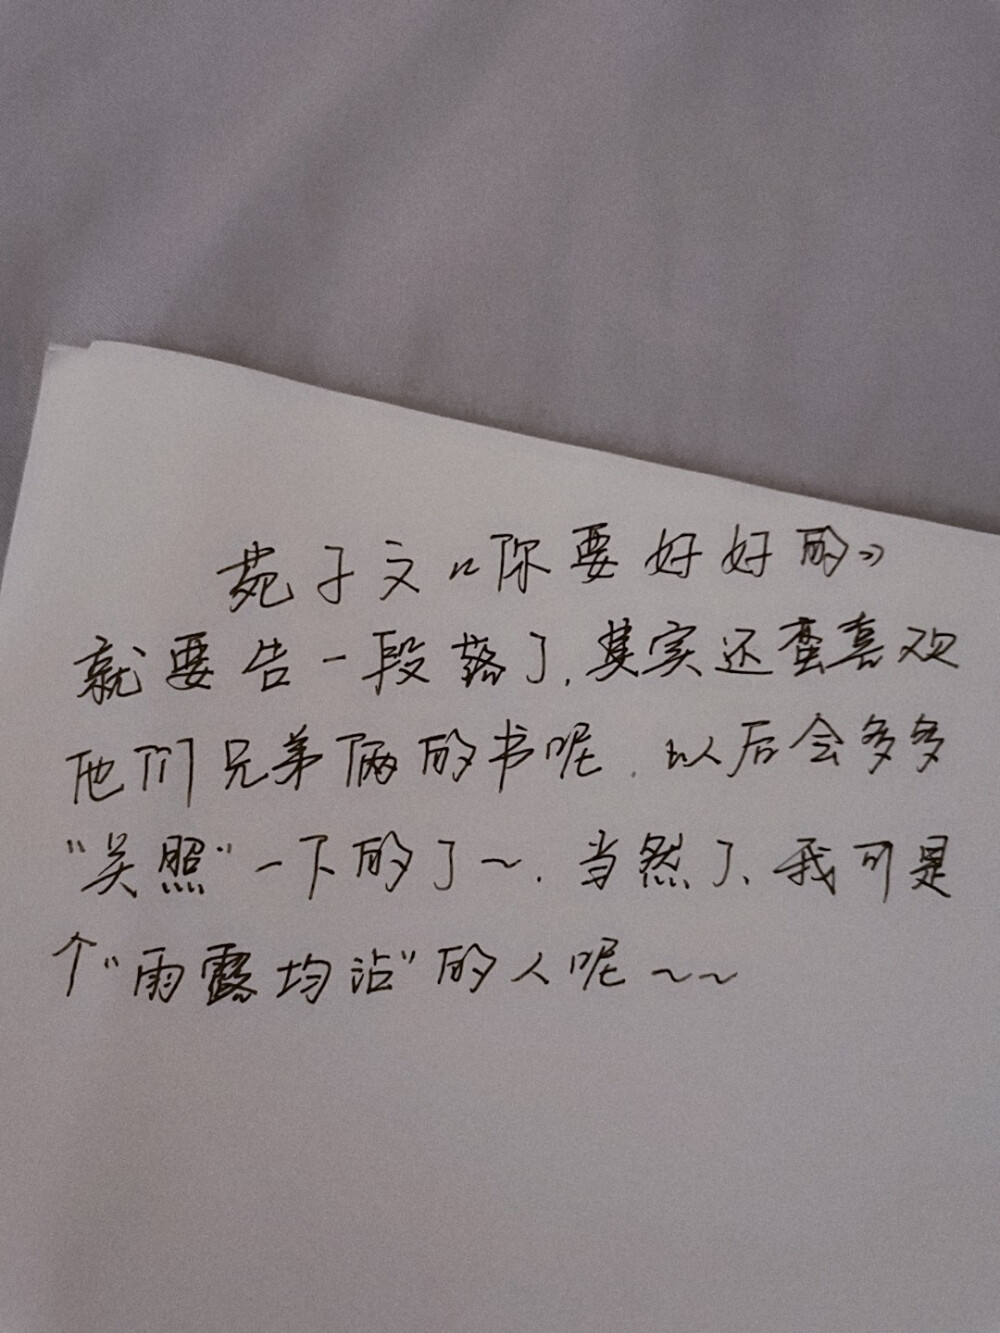 苑子文《你要好好的》
就要告一段落了，其实还蛮喜欢
他们兄弟俩的书呢，以后会多多
“关照”一下的了～。当然了、我可是
个“雨露均沾”的人呢～～